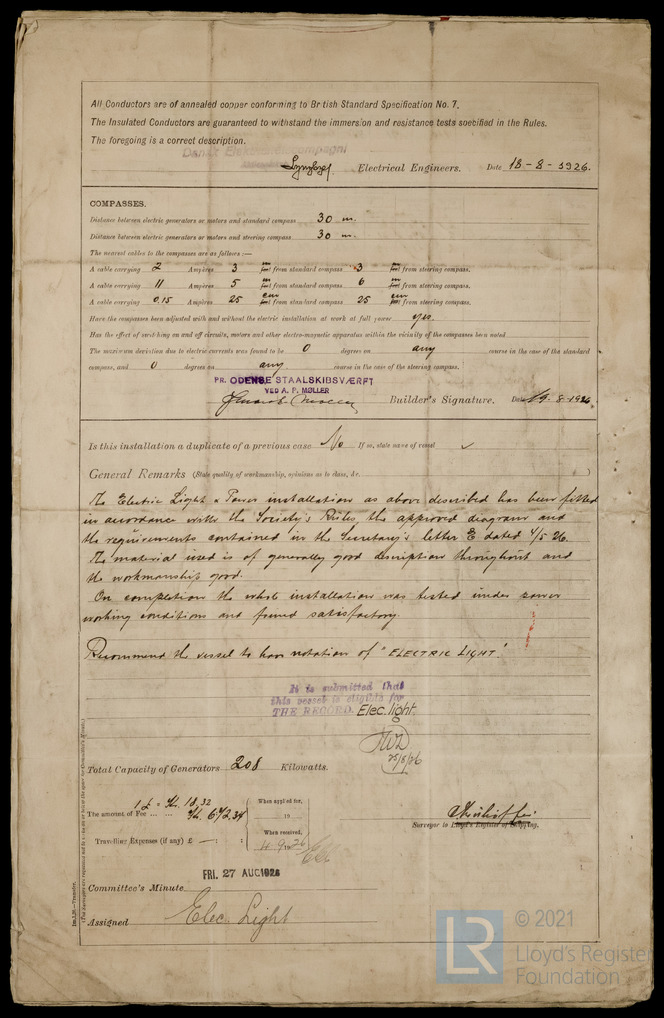 All Conductors are of annealed copper conforming to British Standard Specification No. 7.
The Insulated Conductors are guaranteed to withstand the immersion and resistance tests specified in the Rules.
The foregoing is a correct description.
Electrical Engineers. Date 18-8-1926.
COMPASSES.
Distance between electric generators or motors and standard compass 30 m.
Distance between electric generators or motors and steering compass 30 m.
The nearest cables to the compasses are as follows:—
A cable carrying 2 Ampères 3 m feet from standard compass 3 m feet from steering compass.
A cable carrying 11 Ampères 5 m feet from standard compass 6 m feet from steering compass.
A cable carrying 0,15 Ampères 25 cm feet from standard compass 25 cm feet from steering compass.
Have the compasses been adjusted with and without the electric installation at work at full power yes.
Has the effect of switching on and off circuits, motors and other electro-magnetic apparatus within the vicinity of the compasses been noted
The maximum deviation due to electric currents was found to be 0 degrees on any course in the case of the standard
compass, and 0 degrees on any course in the case of the steering compass.
PR. ODENSE STAALSKIBSVÆRFT
VED A. P. MØLLER
Builder's Signature. Date 19-8-1926
Is this installation a duplicate of a previous case No If so, state name of vessel
General Remarks (State quality of workmanship, opinions as to class, &c. )
The Electric Light & Power installation as above described has been fitted
in accordance with the Society's Rules, the approved diagram and
the requirements contained in the Secretary's letter E dated 4/5 26.
The material used is of generally good description throughout and
the workmanship good.
On completion the whole installation was tested under
working conditions and found satisfactory.
Recommend the vessel to have notation of "ELECTRIC LIGHT".
It is submitted that
this vessel is eligible for
THE RECORD. Elec. light.
25/8/26
Total Capacity of Generators 208 Kilowatts.
1£ = Kr. 18,32
The amount of Fee ... ... Kr.
When applied for,
19
When received,
Travelling Expenses (if any) £
Surveyor to Lloyd's Register of Shipping.
FRI. 27 AUG 1926
Committee's Minute
Assigned Elec. Light
LR © 2021
Lloyd's Register
Foundation